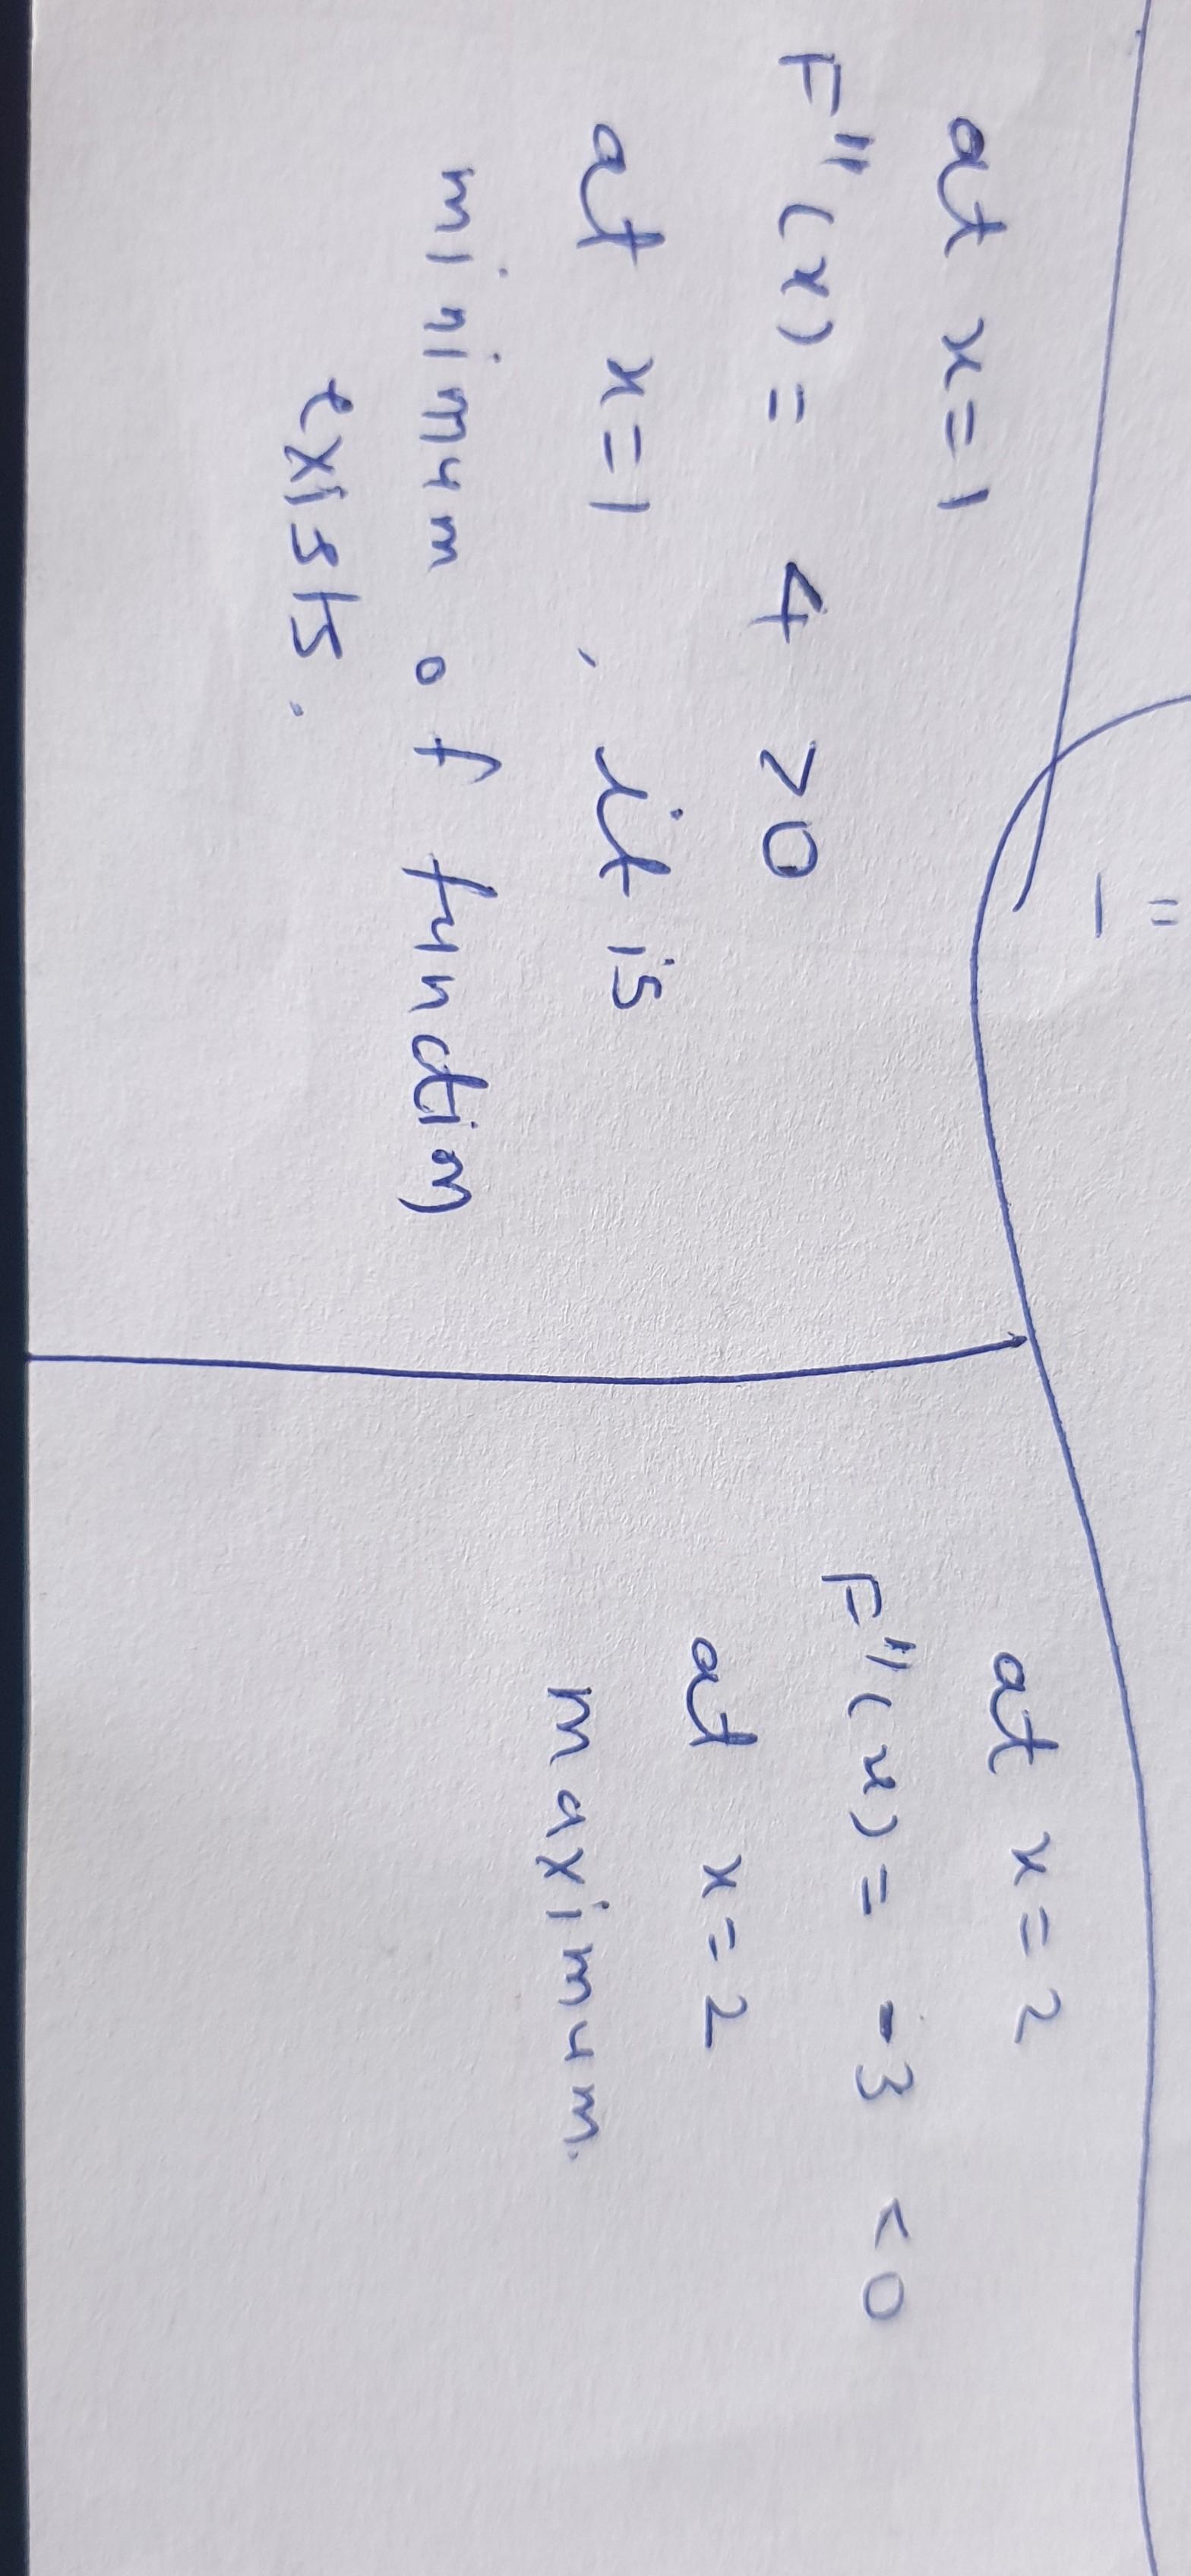 at x=1
F"(x) = 4 >0
at x=1, it is
minimum of function
exists.
at x=2
F"(x) = -3 <0
at x=2
maximum.